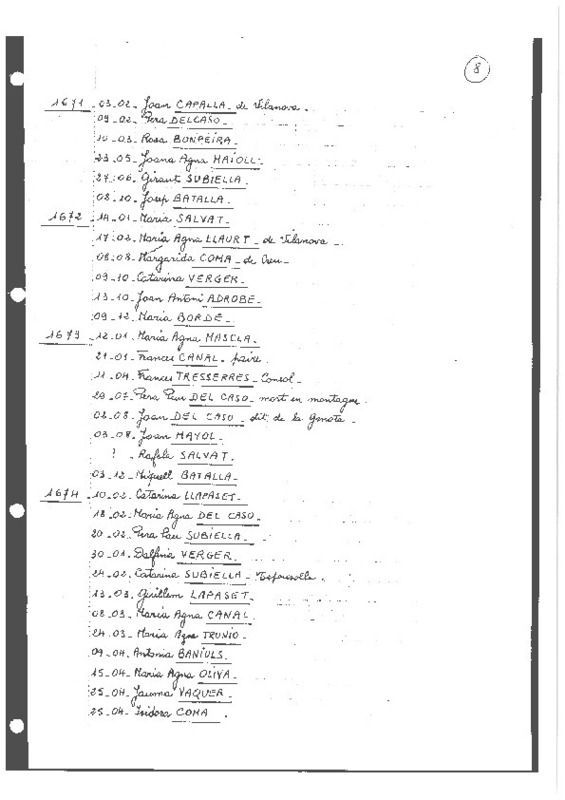 8
1671 - 03.02. Joan CAPALLA - de Vilanova.
09.02. Pera DELCASO -
10.03. Rosa BONPEIRA.
23.05. Joana Agna MAIOLL.
27.06. Giraut SUBIELLA.
08.10. Josep BATALLA.
1672 - 14.01. Maria SALVAT.
17.02. Maria Agna LLAURT - de Vilanova -
08.08. Margarida COMA - de Oseu -
09.10. Catarina VERGER.
13.10. Joan Antoni ADROBE.
09.12. Maria BORDE.
1673 - 12.01. Maria Agna MASCLA.
21.01. Frances CANAL - paire.
11.04. Frances TRESSERRES - Consol -
29.07. Pera Pau DEL CASO - mort en montagne.
02.08. Joan DEL CASO - dit de la Ginota -
03.08. Joan MAYOL.
? - Rafela SALVAT.
03.12. Miquell BATALLA.
1674 - 10.02. Catarina LLAPASET.
18.02. Maria Agna DEL CASO.
20.02. Pera Pau SUBIELLA.
30.01. Dalfina VERGER.
24.02. Catarina SUBIELLA -
13.03. Guillem LAPASET.
08.03. Maria Agna CANAL.
24.03. Maria Agna TRUNIO -
09.04. Antonia BANIULS.
15.04. Maria Agna OLIVA.
25.04. Jauma VAQUER -
25.04. Isidora COMA.